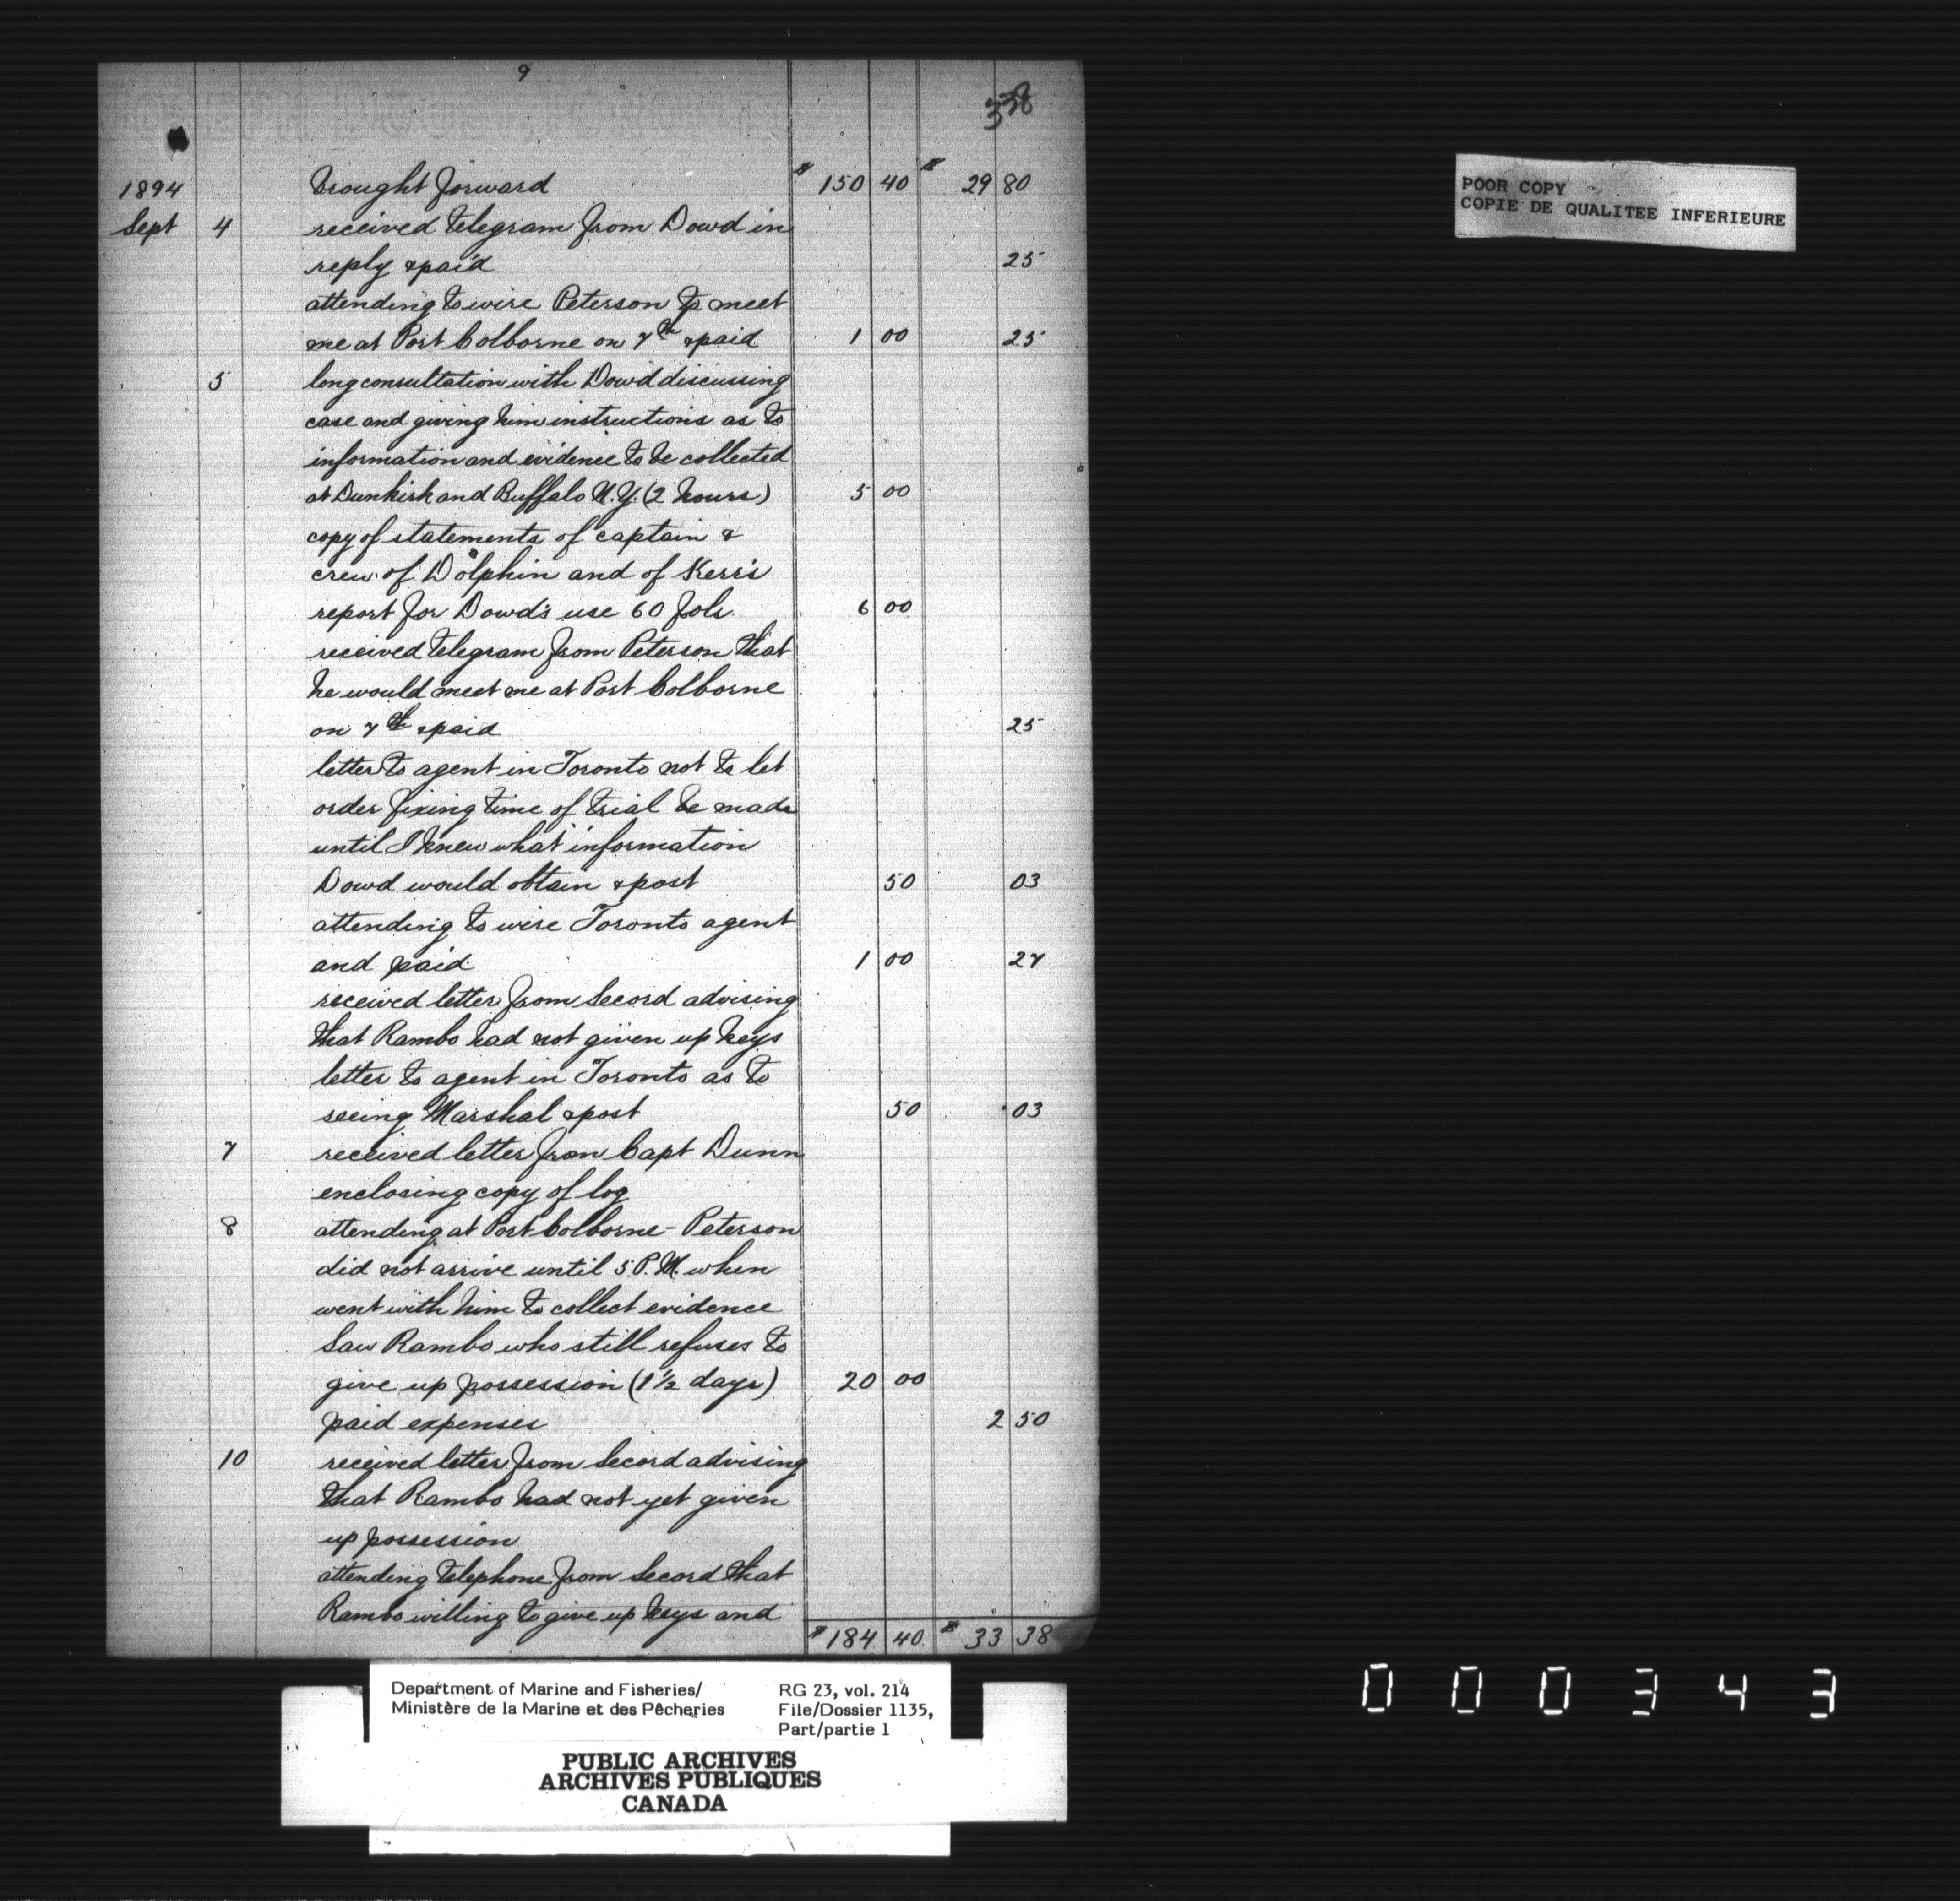 9
1894 brought forward $ 150 40 $ 29 80
Sept 4 received telegram from Dowd in
reply & paid 25
attending to wire Peterson to meet
me at Port Colborne on 7th & paid 1 00 25
5 long consultation with Dowd discussing
case and giving him instructions as to
information and evidence to be collected
at Dunkirk and Buffalo N.Y. (2 hours) 5 00
copy of statements of captain &
crew of Dolphin and of Kerr's
report for Dowd's use 60 fols. 6 00
received telegram from Peterson that
he would meet me at Port Colborne
on 7th & paid 25
letter to agent in Toronto not to let
order fixing time of trial be made
until I knew what information
Dowd would obtain & post 50 03
attending to wire Toronto agent
and paid 1 00 27
received letter from Secord advising
that Rambo had not given up keys
letter to agent in Toronto as to
seeing Marshal & post 50 03
7 received letter from Capt Dunn
enclosing copy of log
8 attending at Port Colborne - Peterson
did not arrive until 5 P.M. when
went with him to collect evidence
Saw Rambo who still refuses to
give up possession (1½ days) 20 00
paid expenses 2 50
10 received letter from Secord advising
that Rambo had not yet given
up possession
attending telephone from Secord that
Rambo willing to give up keys and
$ 184 40 $ 33 38
POOR COPY
COPIE DE QUALITEE INFERIEURE
Department of Marine and Fisheries/
Ministère de la Marine et des Pêcheries
RG 23, vol. 214
File/Dossier 1135,
Part/partie 1
PUBLIC ARCHIVES
ARCHIVES PUBLIQUES
CANADA
000343